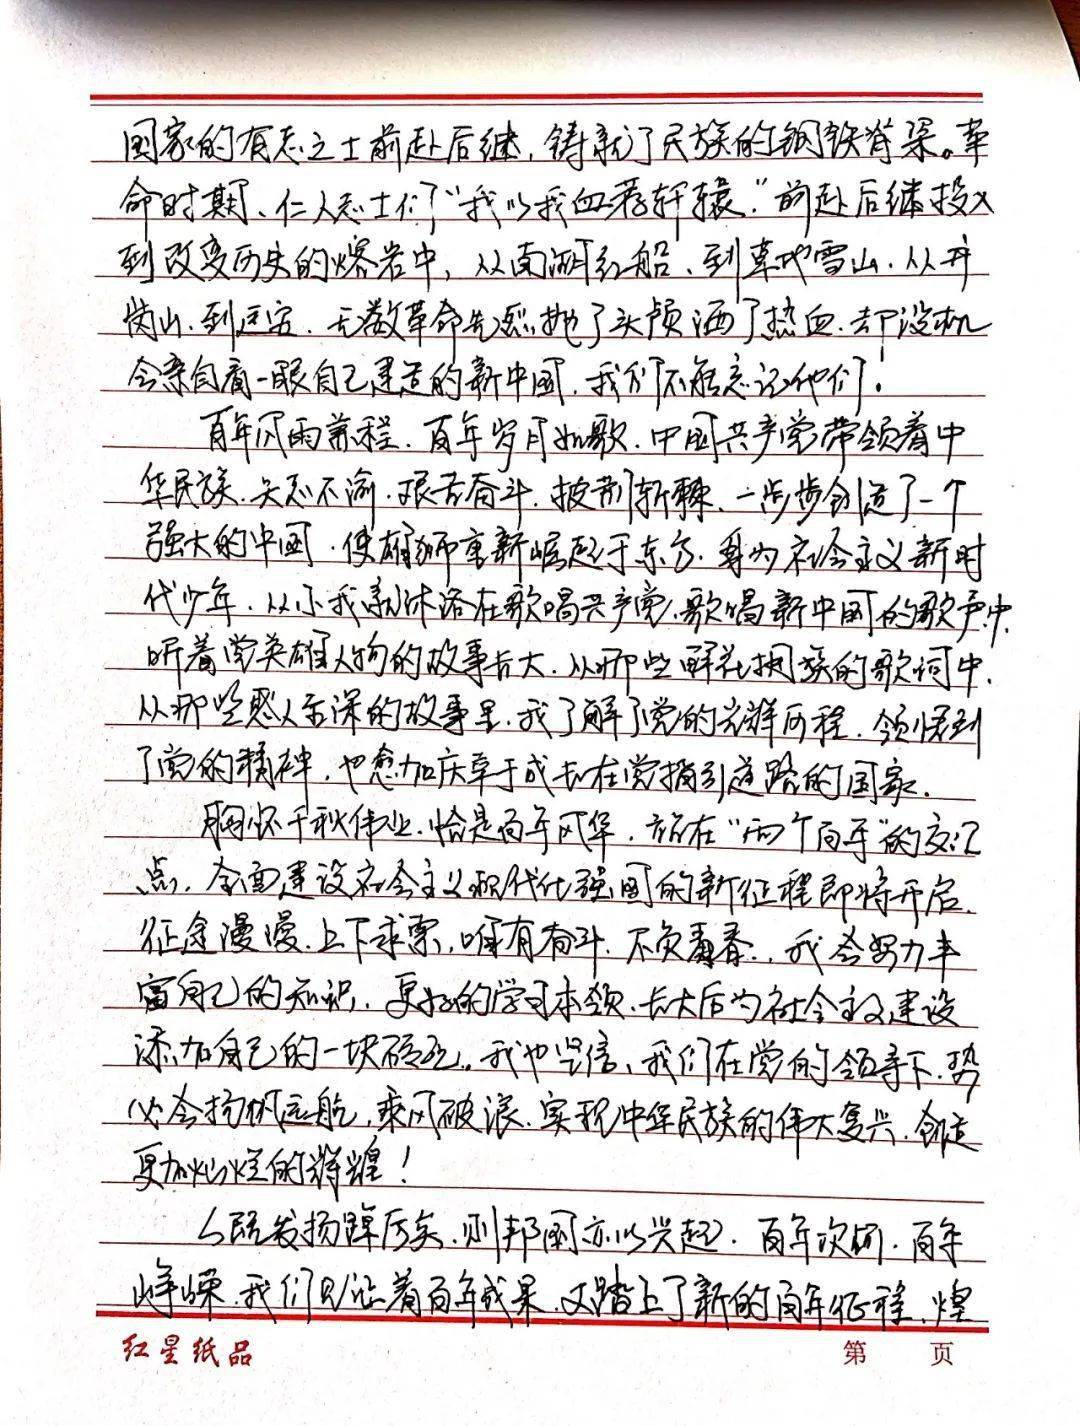 国家的有志之士前赴后继，铸就了民族的钢铁脊梁。革
命时期、仁人志士们了“我以我血荐轩辕”前赴后继投入
到改变历史的熔岩中，从南湖红船、到草地雪山，从井
岗山，到延安，无数革命先烈抛了头颅洒了热血，却没机
会亲自看一眼自己建造的新中国，我们不能忘记他们！
百年风雨兼程，百年岁月如歌，中国共产党带领着中
华民族，矢志不渝，艰苦奋斗，披荆斩棘，一步步创造了一个
强大的中国，使雄狮重新崛起于东方，身为社会主义新时
代少年，从小我就沐浴在歌唱共产党、歌唱新中国的歌声中，
听着党英雄人物的故事长大，从那些解放拥族的歌词中，
从那些感人至深的故事里，我了解了党的光辉历程，领悟到
了党的精神，也愈加庆幸于成长在党指引道路的国家。
胸怀千秋伟业，恰是百年风华，站在“两个百年”的交汇
点，全面建设社会主义现代化强国的新征程即将开启，
征途漫漫，上下求索，唯有奋斗，不负青春，我会努力丰
富自己的知识，更好的学习本领，长大后为社会主义建设
添加自己的一块砖瓦。我也坚信，我们在党的领导下，势
必会扬帆远航，乘风破浪，实现中华民族的伟大复兴，创造
更加灿烂的辉煌！
人既发扬踔厉矣，则邦国亦以兴起，百年次第，百年
峥嵘，我们见证着百年成果，又踏上了新的百年征程，煌
红星纸品
第 页